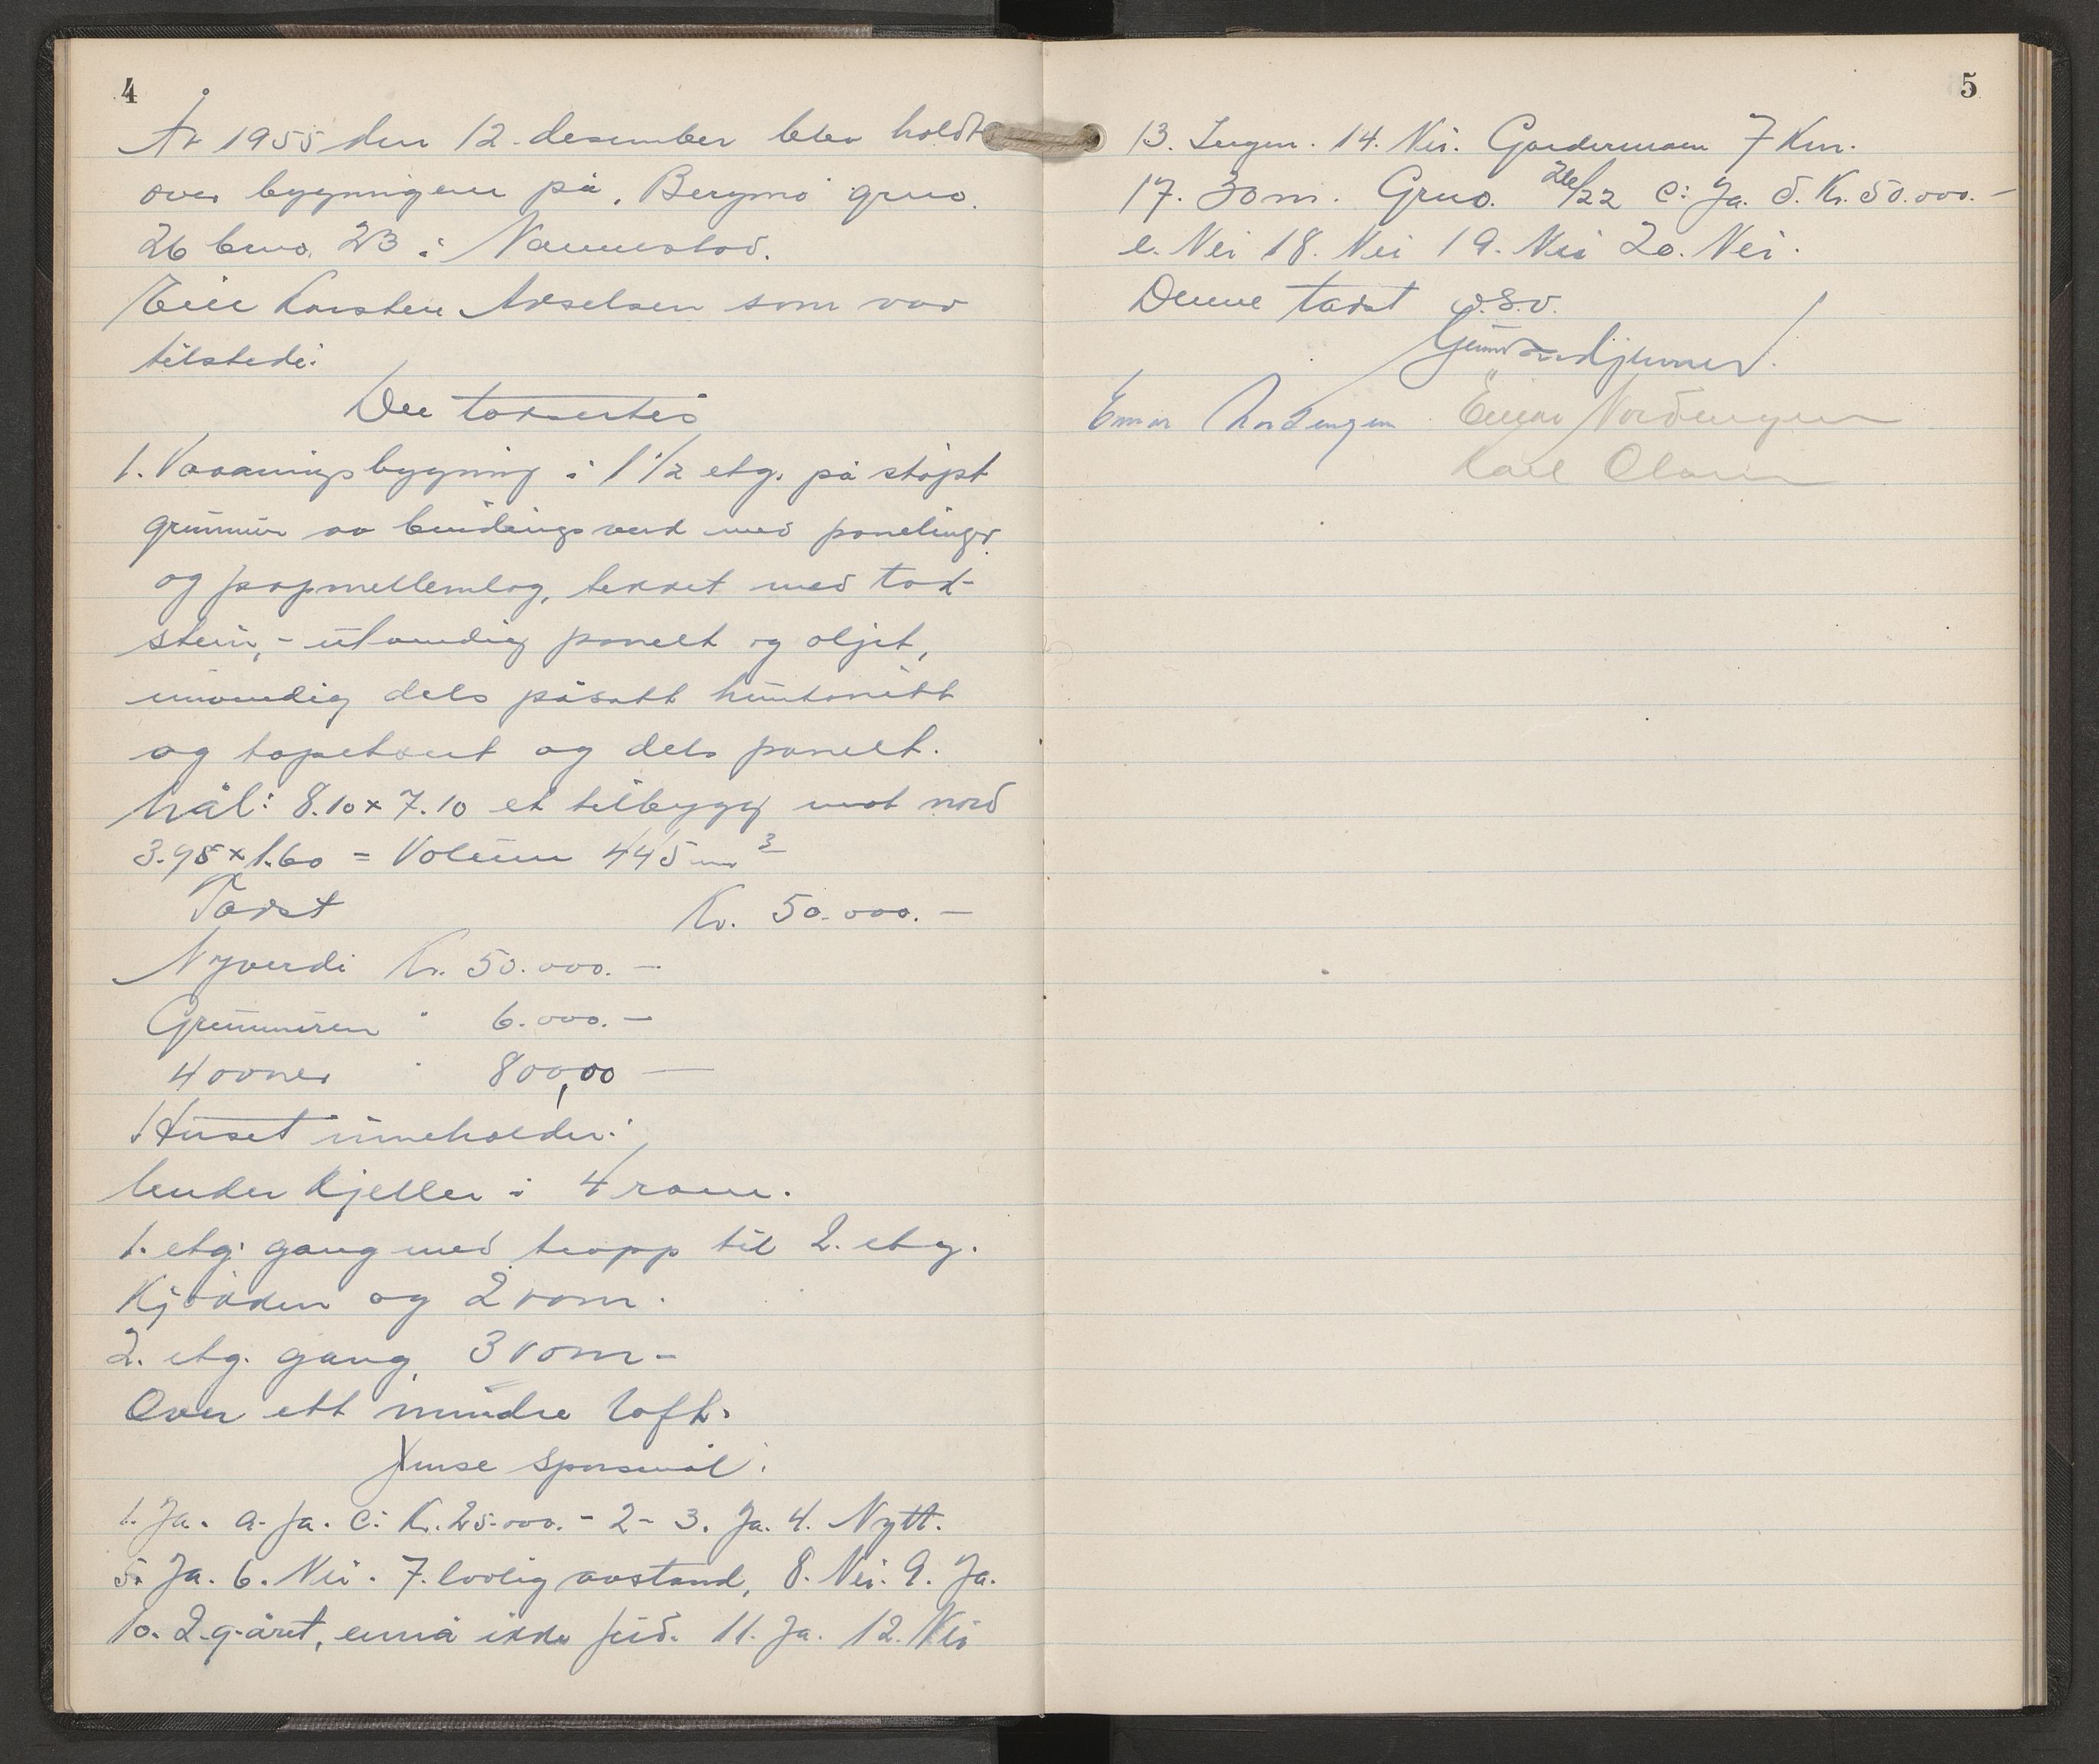 4
År 1955 den 12. desember blev holdt
over bygningene på "Bergmo" gno.
26 bno. 23 i Nannestad.
Eier Karsten Akselsen som var
tilstede:
Der taksertes
1. Vaaningsbygning i 1 1/2 etg. på støpt
grunnmur av bindingsverk med panelinger
og papmellemlag, tekket med tak-
stein, - utvendig panelt og oljet,
innvendig dels påsatt huntonitt
og tapetsert og dels panelt.
Mål: 8.10 x 7.10 et tilbygg mot nord
3.98 x 1.60 = Volum 445 m3
Takst Kr. 50.000.-
Nyverdi Kr. 50.000.-
Grunnmuren " 6.000.-
4 ovner " 800,00 -
Huset inneholder:
Under kjeller i 4 rom.
1. etg. gang med trapp til 2. etg.
Kjøkken og 2 rom.
2. etg. gang, 3 rom -
Over ett mindre loft.
Ymse spørsmål:
1. Ja. a. ja. c: Kr. 25.000. - 2 - 3. Ja. 4. Nytt.
5. Ja. 6. Nei. 7. lovlig avstand, 8. Nei. 9. Ja.
10. 2 g. året, ennå ikke feid. 11. Ja. 12. Nei
5
13. Ingen. 14. Nei. Gardermoen 7 Km.
17. 30 m. Gno. 26/22 c: Ja. d. Kr. 50.000.-
e. Nei 18. Nei 19. Nei 20. Nei.
Denne takst
Einar Nordengen Einar Nordengen
Karl Olsen